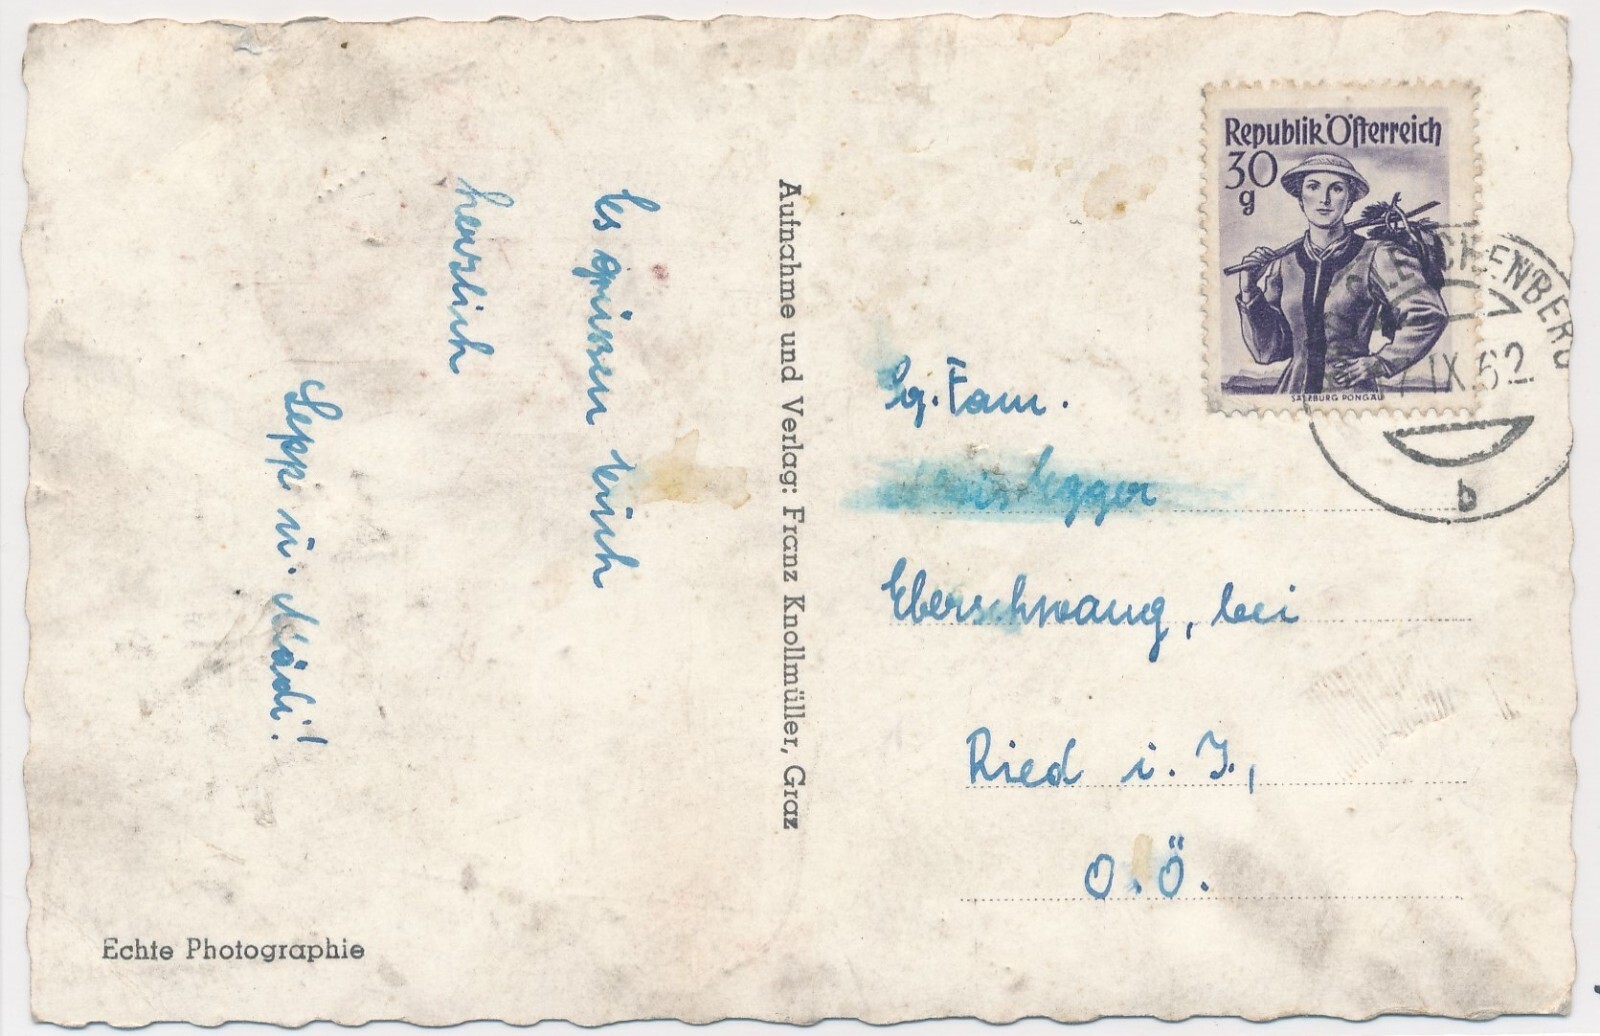 Es grüssen euch
herzlich
Sepp u. Mädi!
Echte Photographie
Aufnahme und Verlag: Franz Knollmüller, Graz
Republik Österreich
30
g
SALZBURG PONGAU
GLEICHENBERG
IX.52
b
Fam.
egger
Eberschwang, bei
Ried i. I.,
O.Ö.